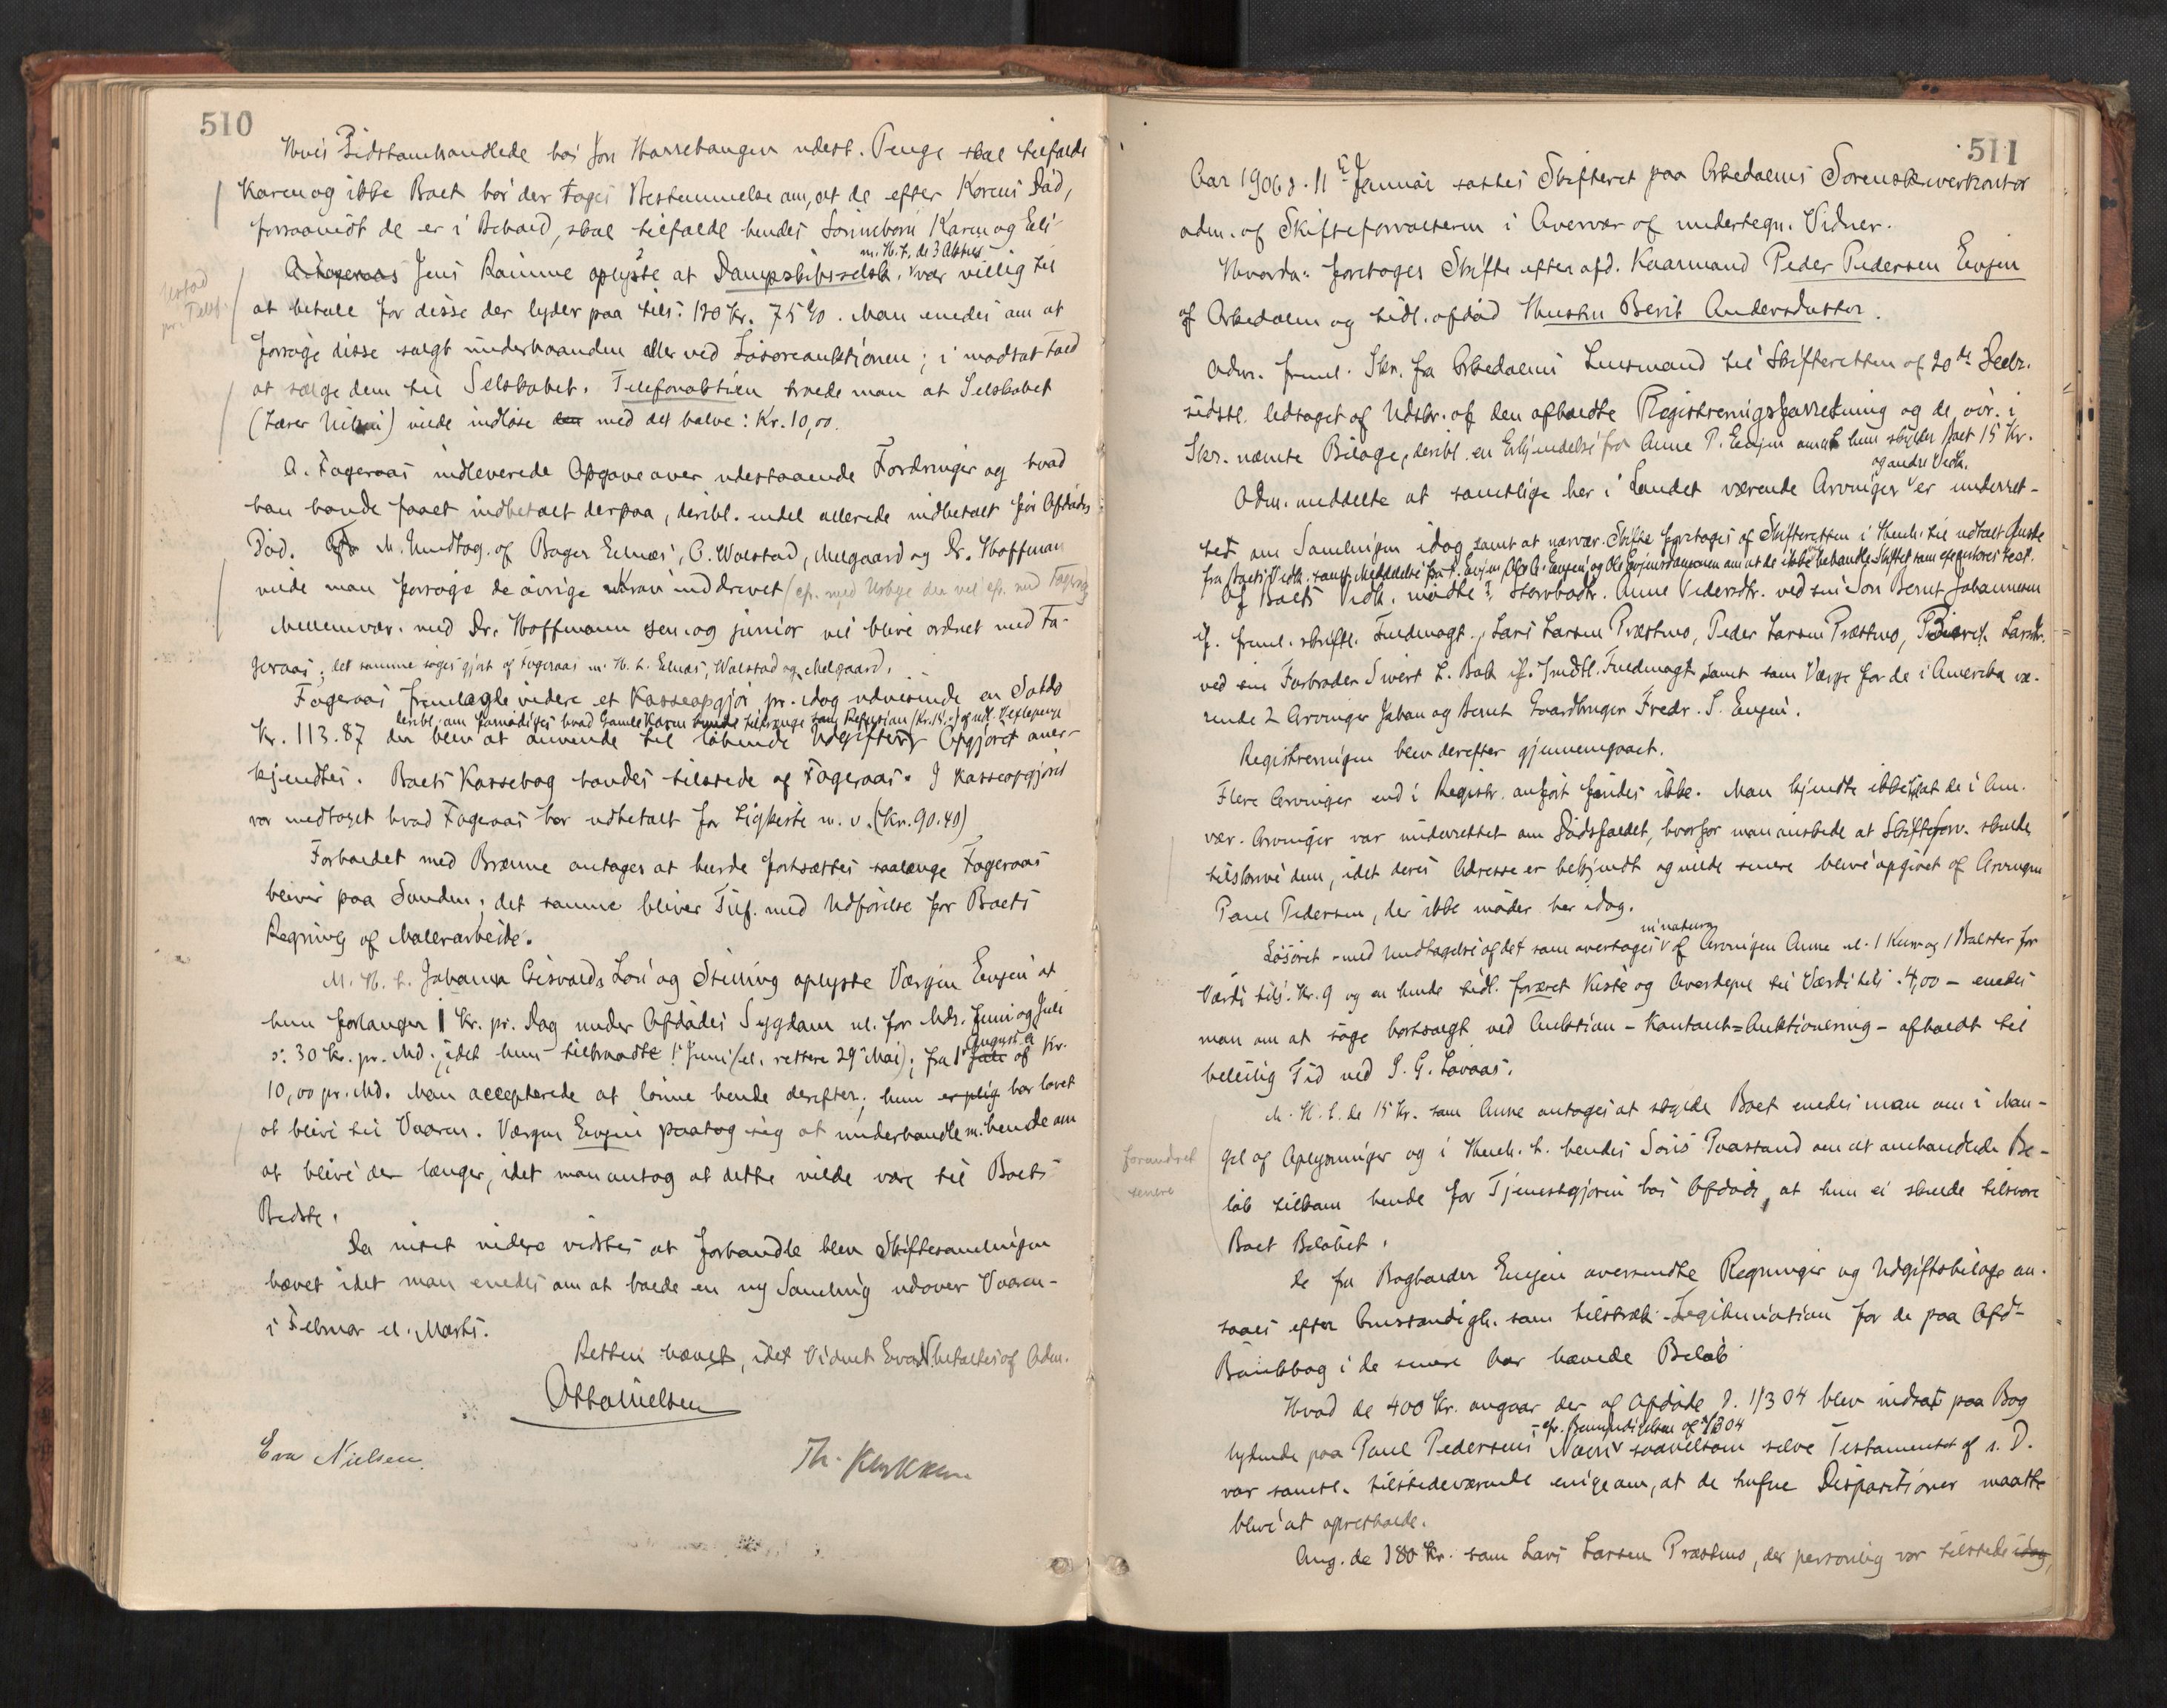 510
Hvis sidstomhandlede hos Jon Harrehaugen udest. Penge skal tilfalde
Karen og ikke Boet bør der tages Bestemmelse om, at de efter Karens Død,
forsaavidt de er i Behold, skal tilfalde hendes Sønnebørn Karen og Eli
m. H. t. de 3 Aktier
Jens Ramme oplyste at Dampskibsselsk. var villig til
at betale for disse der lyder paa tils: 120 Kr. 75 %. Man enedes om at
forsøge disse solgt underhaanden eller ved Løsøreauktionen; i modsat Fald
at sælge dem til Selskabet. Telefonaktien troede man at Selskabet
(Lærer Nilsen) vilde indløse den med det halve: Kr. 10,00.
A. Fageraas indleverede Opgave over udestaaende Fordringer og hvad
han havde faaet indbetalt derpaa, deribl. endel allerede indbetalt før Afdødes
Død. M. Undtag. af Bager Elnæs, O. Walstad, Melgaard og Dr. Hoffman
vilde man forsøge de øvrige Krav inddrevet
Mellemvær. med Dr. Hoffmann sen. og junior vil blive ordnet med Fa-
geraas; det samme søges gjort af Fageraas m. H. t. Elnæs, Walstad og Melgaard.
Fageraas fremlagde videre et Kasseopgjør pr. idag udvisende en Saldo
Kr. 113.87 der blev at anvende til løbende Udgifter, Opgjøret aner-
kjendtes. Boets Kassebog havdes tilstede af Fageraas. I Kasseopgjøret
var medtaget hvad Fageraas har udbetalt for Ligkiste m. v. (Kr. 90.40)
Forholdet med Brænne antages at burde fortsættes saalænge Fageraas
bliver paa Sanden; det samme bliver Tilf. med Udførelse for Boets
Regning af Malerarbeide.
M. H. t. Johanna Grisvolds Løn og Stilling oplyste Værgen Evjen at
hun forlanger 1 Kr. pr. Dag under Afdødes Sygdom nl. for Mdr. Juni og Juli
August a
ɔ: 30 Kr. pr. Md., idet hun tiltraadte 1' Juni (el. rettere 29' Mai); fra 1' Juli af Kr.
10,00 pr. Md. Man accepterede at lønne hende derefter; hun har lovet
at blive til Vaaren. Værgen Evjen paatog sig at underhandle m. hende om
at blive der længer, idet man antog at dette vilde være til Boets
Bedste.
Da intet videre vidstes at forhandle blev Skiftesamlingen
hævet idet man enedes om at holde en ny Samling udover Vaaren-
i Februar el. Marts.
Retten hævet, idet Vidnet Eva N betaltes af Adm.
Otto Nielsen
Eva Nielsen.
511
Aar 1906 d. 11te Januar sattes Skifteret paa Orkedalens Sorenskriverkontor
adm. af Skifteforvalteren i Overvær af undertegn. Vidner.
Hvorda: foretages Skifte efter afd. Kaarmand Peder Pedersen Evjen
af Orkedalen og tidl. afdød Hustru Berit Andersdatter.
Adm. freml. Skr. fra Orkedalens Lensmand til Skifteretten af 20de Decbr.
sidstl. ledsaget af Udskr. af den afholdte Registreringsforretning og de øvr. i
Skr. nævnte Bilage, deribl. en Erkjendelse fra Anne P. Evjen om at hun skylder Boet 15 Kr.
og andre Vedk.
Adm. meddelte at samtlige her i Landet værende Arvinger er underret-
tet om Samlingen idag samt at nærvær. Skifte foretages af Skifteretten i Henh. til udtalt Ønske
af Boets Vedk. mødte: Anne Pedersdtr. ved sin Søn Bernt Johannesen
if. freml. skriftl. Fuldmagt, Lars Larsen Præstmo, Peder Larsen Præstmo, Larsdtr.
ved sin Farbroder Sivert L. Bak if. mdtl. Fuldmagt samt som Værge for de i Amerika væ-
rende 2 Arvinger Johan og Bernt Gaardbruger Fredr. S. Evjen.
Registreringen blev derefter gjennemgaaet.
Flere Arvinger end i Registr. anført findes ikke. Man kjendte ikke til at de i Am.
vær. Arvinger var underrettet om Dødsfaldet, hvorfor man ønskede at Skifteforv. skulde
tilskrive dem, idet deres Adresse er bekjendt og vilde senere blive opgivet af Arvingen
Paul Pedersen, der ikke møder her idag.
in natura
Løsøret - med Undtagelse af det som overtages af Arvingen Anne nl. 1 Kum og 1 Bolster for
Værdi tils. Kr. 9 og en hende tidl. foræret Kiste og Overdyne til Værdi tils. 4,00 - enedes
man om at søge bortsolgt ved Auktion - Kontant-Auktionering - afholdt til
beleilig Tid ved S. G. Lovaas.
M. H. t. de 15 Kr. som Anne antages at skylde Boet enedes man om i Man-
forandret
senere
gel af Oplysninger og i Henh. t. hendes Søns Paastand om at omhandlede Be-
løb tilkom hende for Tjenestgjøren hos Afdøde, at hun ei skulde tilsvare
Boet Beløbet.
De fra Bogholder Evjen oversendte Regninger og Udgiftsbilage an-
saaes efter Omstændigh. som tilstræk. Legitimation for de paa Afd.
Bankbog i de senere Aar hævede Beløb
Hvad de 400 Kr. angaar der af Afdøde d. 1/3 04 blev indsat paa Bog
lydende paa Paul Pedersens Navn saavelsom selve Testamentet af s. D.
var samtl. tilstedeværende enige om, at de trufne Dispositioner maatte
blive at opretholde.
Ang. de 180 Kr. som Lars Larsen Præstmo, der personlig var tilstede idag,